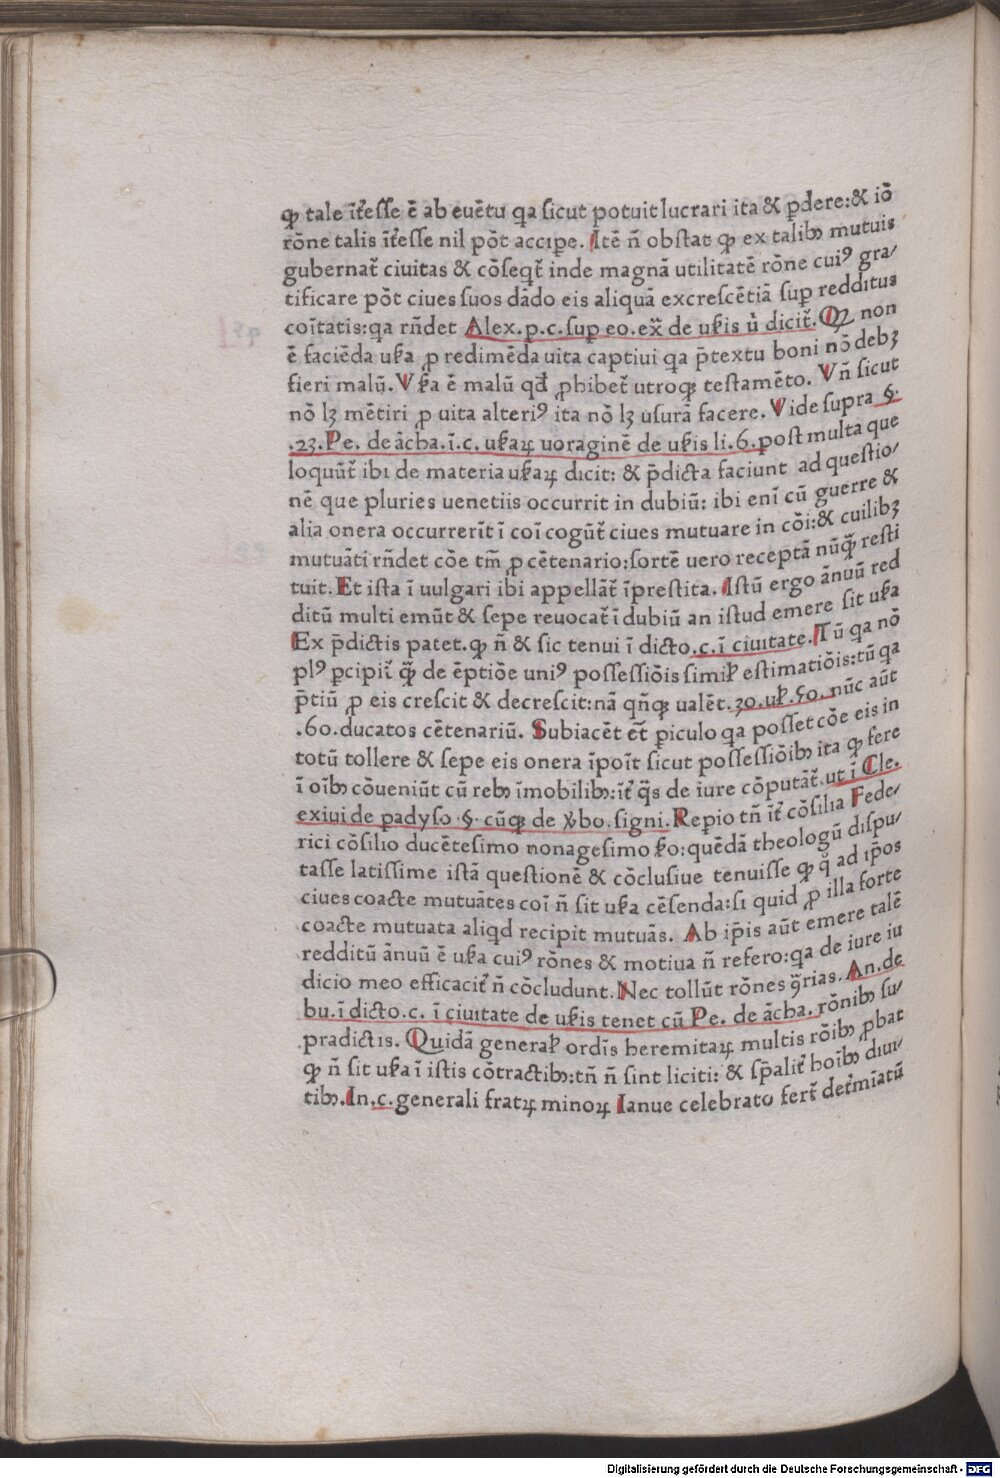 ꝙ tale īt͛esse ē ab euētu qa sicut potuit lucrari ita & ꝑdere:& iō
rōne talis īt͛esse nil pōt accipe. Itē n̄ obstat ꝙ ex talibꝫ mutuis
gubernat͛ ciuitas & cōseqt͛ inde magnā utilitatē rōne cuiꝰ gra⸗
tificare pōt ciues suos dādo eis aliquā excrescētiā suꝑ redditus
coītatis:qa rn̄det Alex.p.c.suꝑ eo.ex̄ de usu͛is ù dicit͛.Qꝫ non
ē faciēda usu͛a ꝓ redimēda uita captiui qa p̄textu boni nō debꝫ
fieri malū.Vsu͛a ē malū qd̄ ꝓhibet͛ utroqꝫ testamēto. Vn̄ sicut
nō lꝫ mētiri ꝓ uita alteriꝰ ita nō lꝫ usurā facere. Vide supra §.
.23.Pe. de ācha.ī.c. usu͛aꝝ uoraginē de usu͛is li.6.post multa que
loquūt͛ ibi de materia usu͛aꝝ dicit: & p̄dicta faciunt ad questio⸗
nē que pluries uenetiis occurrit in dubiū: ibi eni cū guerre &
alia onera occurrerīt ī coī cogūt͛ ciues mutuare in cōi:& cuilibꝫ
mutuāti rn̄det cōe tm̄ ꝓ cētenario:sortē uero receptā nūqꝫ resti
tuit.Et ista ī uulgari ibi appellāt͛ īprestita. Istū ergo ānuū red
ditū multi emūt & sepe reuocat͛ ī dubiū an istud emere sit usu͛a
Ex p̄dictis patet.ꝙ n̄ & sic tenui ī dicto.c.ī ciuitate. Tū qa nō
plꝰ ꝑcipit͛ ꝙ̄ de ēptiōe uniꝰ possessiōis simil͛ estimatiōis:tū qa
p̄tiū ꝓ eis crescit & decrescit:nā qn̄qꝫ ualēt.30.ul͛.50. nūc aūt
.60.ducatos cētenariū. Subiacēt et̄ ꝑiculo qa posset cōe eis in
totū tollere & sepe eis onera īpoīt sicut possessiōibꝫ ita ꝙ fere
ī oībꝫ cōueniūt cū rebꝫ īmobilibꝫ:it͛ q̄s de iure cōputāt͛.ut ī Cle.
exiui de padyso.§. cūqꝫ de v͛bo.signi.Repio tn̄ it͛ cōsilia Fede⸗
rici cōsilio ducētesimo nonagesimo ṗo:quēdā theologū dispu⸗
tasse latissime istā questionē & cōclusiue tenuisse ꝙ q̊ ad ip̄os
ciues coacte mutuātes coī n̄ sit usu͛a cēsenda:si quid ꝓ illa forte
coacte mutuata aliqd recipit mutuās. Ab ip̄is aūt emere talē
redditū ānuū ē usu͛a cuiꝰ rōnes & motiua n̄ refero:qa de iure iu
dicio meo efficacit͛ n̄ cōcludunt.Nec tollūt rōnes ꝯ̄rias. An.de
bu.ī dicto.c. ī ciuitate de usu͛is tenet cū Pe. de ācha. rōnibꝫ su⸗
pradictis. Quidā general͛ ordīs heremitaꝝ multis rōibꝫ ꝓbat
ꝙ n̄ sit usu͛a ī istis cōtractibꝫ:tn̄ n̄ sint liciti: & sp̄alit͛ hoībꝫ diui⸗
tibꝫ.In.c.generali fratꝝ minoꝝ Ianue celebrato fert͛ det͛mīatū
Digitalisierung gefördert durch die Deutsche Forschungsgemeinschaft - DFG